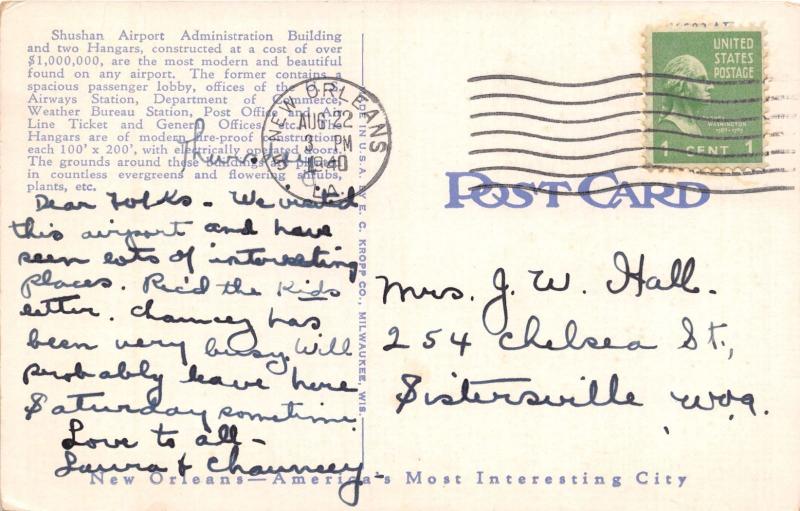 Shushan Airport Administration Building
and two Hangars, constructed at a cost of over
$1,000,000, are the most modern and beautiful
found on any airport. The former contains a
spacious passenger lobby, offices of the
Airways Station, Department of Commerce,
Weather Bureau Station, Post Office and Air
Line Ticket and General Offices, etc. The
Hangars are of modern fire-proof construction,
each 100' x 200', with electrically operated doors.
The grounds around these buildings are planted
in countless evergreens and flowering shrubs,
plants, etc.
Thursday
Dear Folks - We visited
this airport and have
seen lots of interesting
places. Rec'd the Kids
letter. Chauncey has
been very busy. Will
probably leave here
Saturday sometime.
Love to all -
Laura & Chauncey -
MADE IN U.S.A. BY E. C. KROPP CO., MILWAUKEE, WIS.
NEW ORLEANS
AUG 22
3 PM
1940
LA.
UNITED
STATES
POSTAGE
WASHINGTON
1 CENT 1
POST CARD
Mrs. J. W. Hall.
254 Chelsea St.,
Sistersville W.Va.
New Orleans—America's Most Interesting City